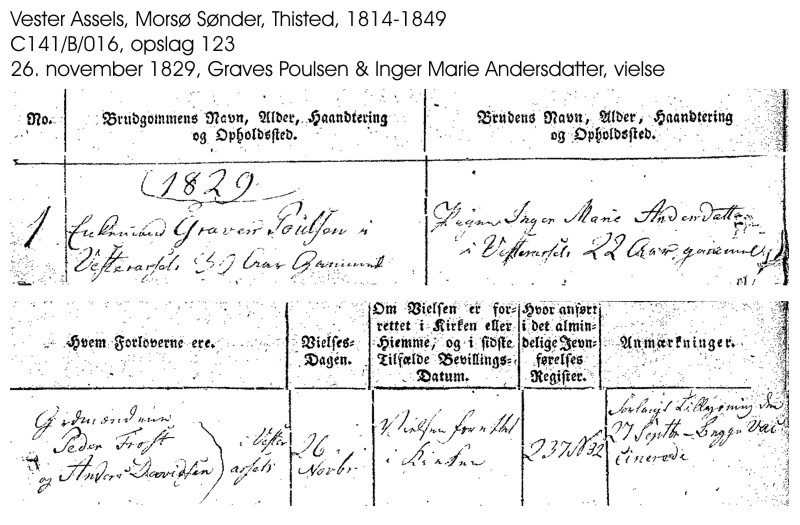 Vester Assels, Morsø Sønder, Thisted, 1814-1849
C141/B/016, opslag 123
26. november 1829, Graves Poulsen & Inger Marie Andersdatter, vielse
No.
Brudgommens Navn, Alder, Haandtering
og Opholdssted.
Brudens Navn, Alder, Haandtering
og Opholdssted.
1829
1
Enkemand Graves Poulsen i
Vesterassels 39 Aar Gammel
Pigen Inger Marie Andersdatter
i Vesterassels 22 Aar gammel
Hvem Forloverne ere.
Vielses-
Dagen.
Om Vielsen er for-
rettet i Kirken eller
Hiemme, og i sidste
Tilfælde Bevillings-
Datum.
Hvor anført
i det almin-
delige Jevn-
førelses
Register.
Anmærkninger.
Grdmændene
Peder Frost
og Anders Davidsen
i Vester
assels
26
Novbr
Vielsen forrettet
i Kirken
237 N 32
Forlangt Tillysning den
27 Septbr - Begge Vac
cinerede